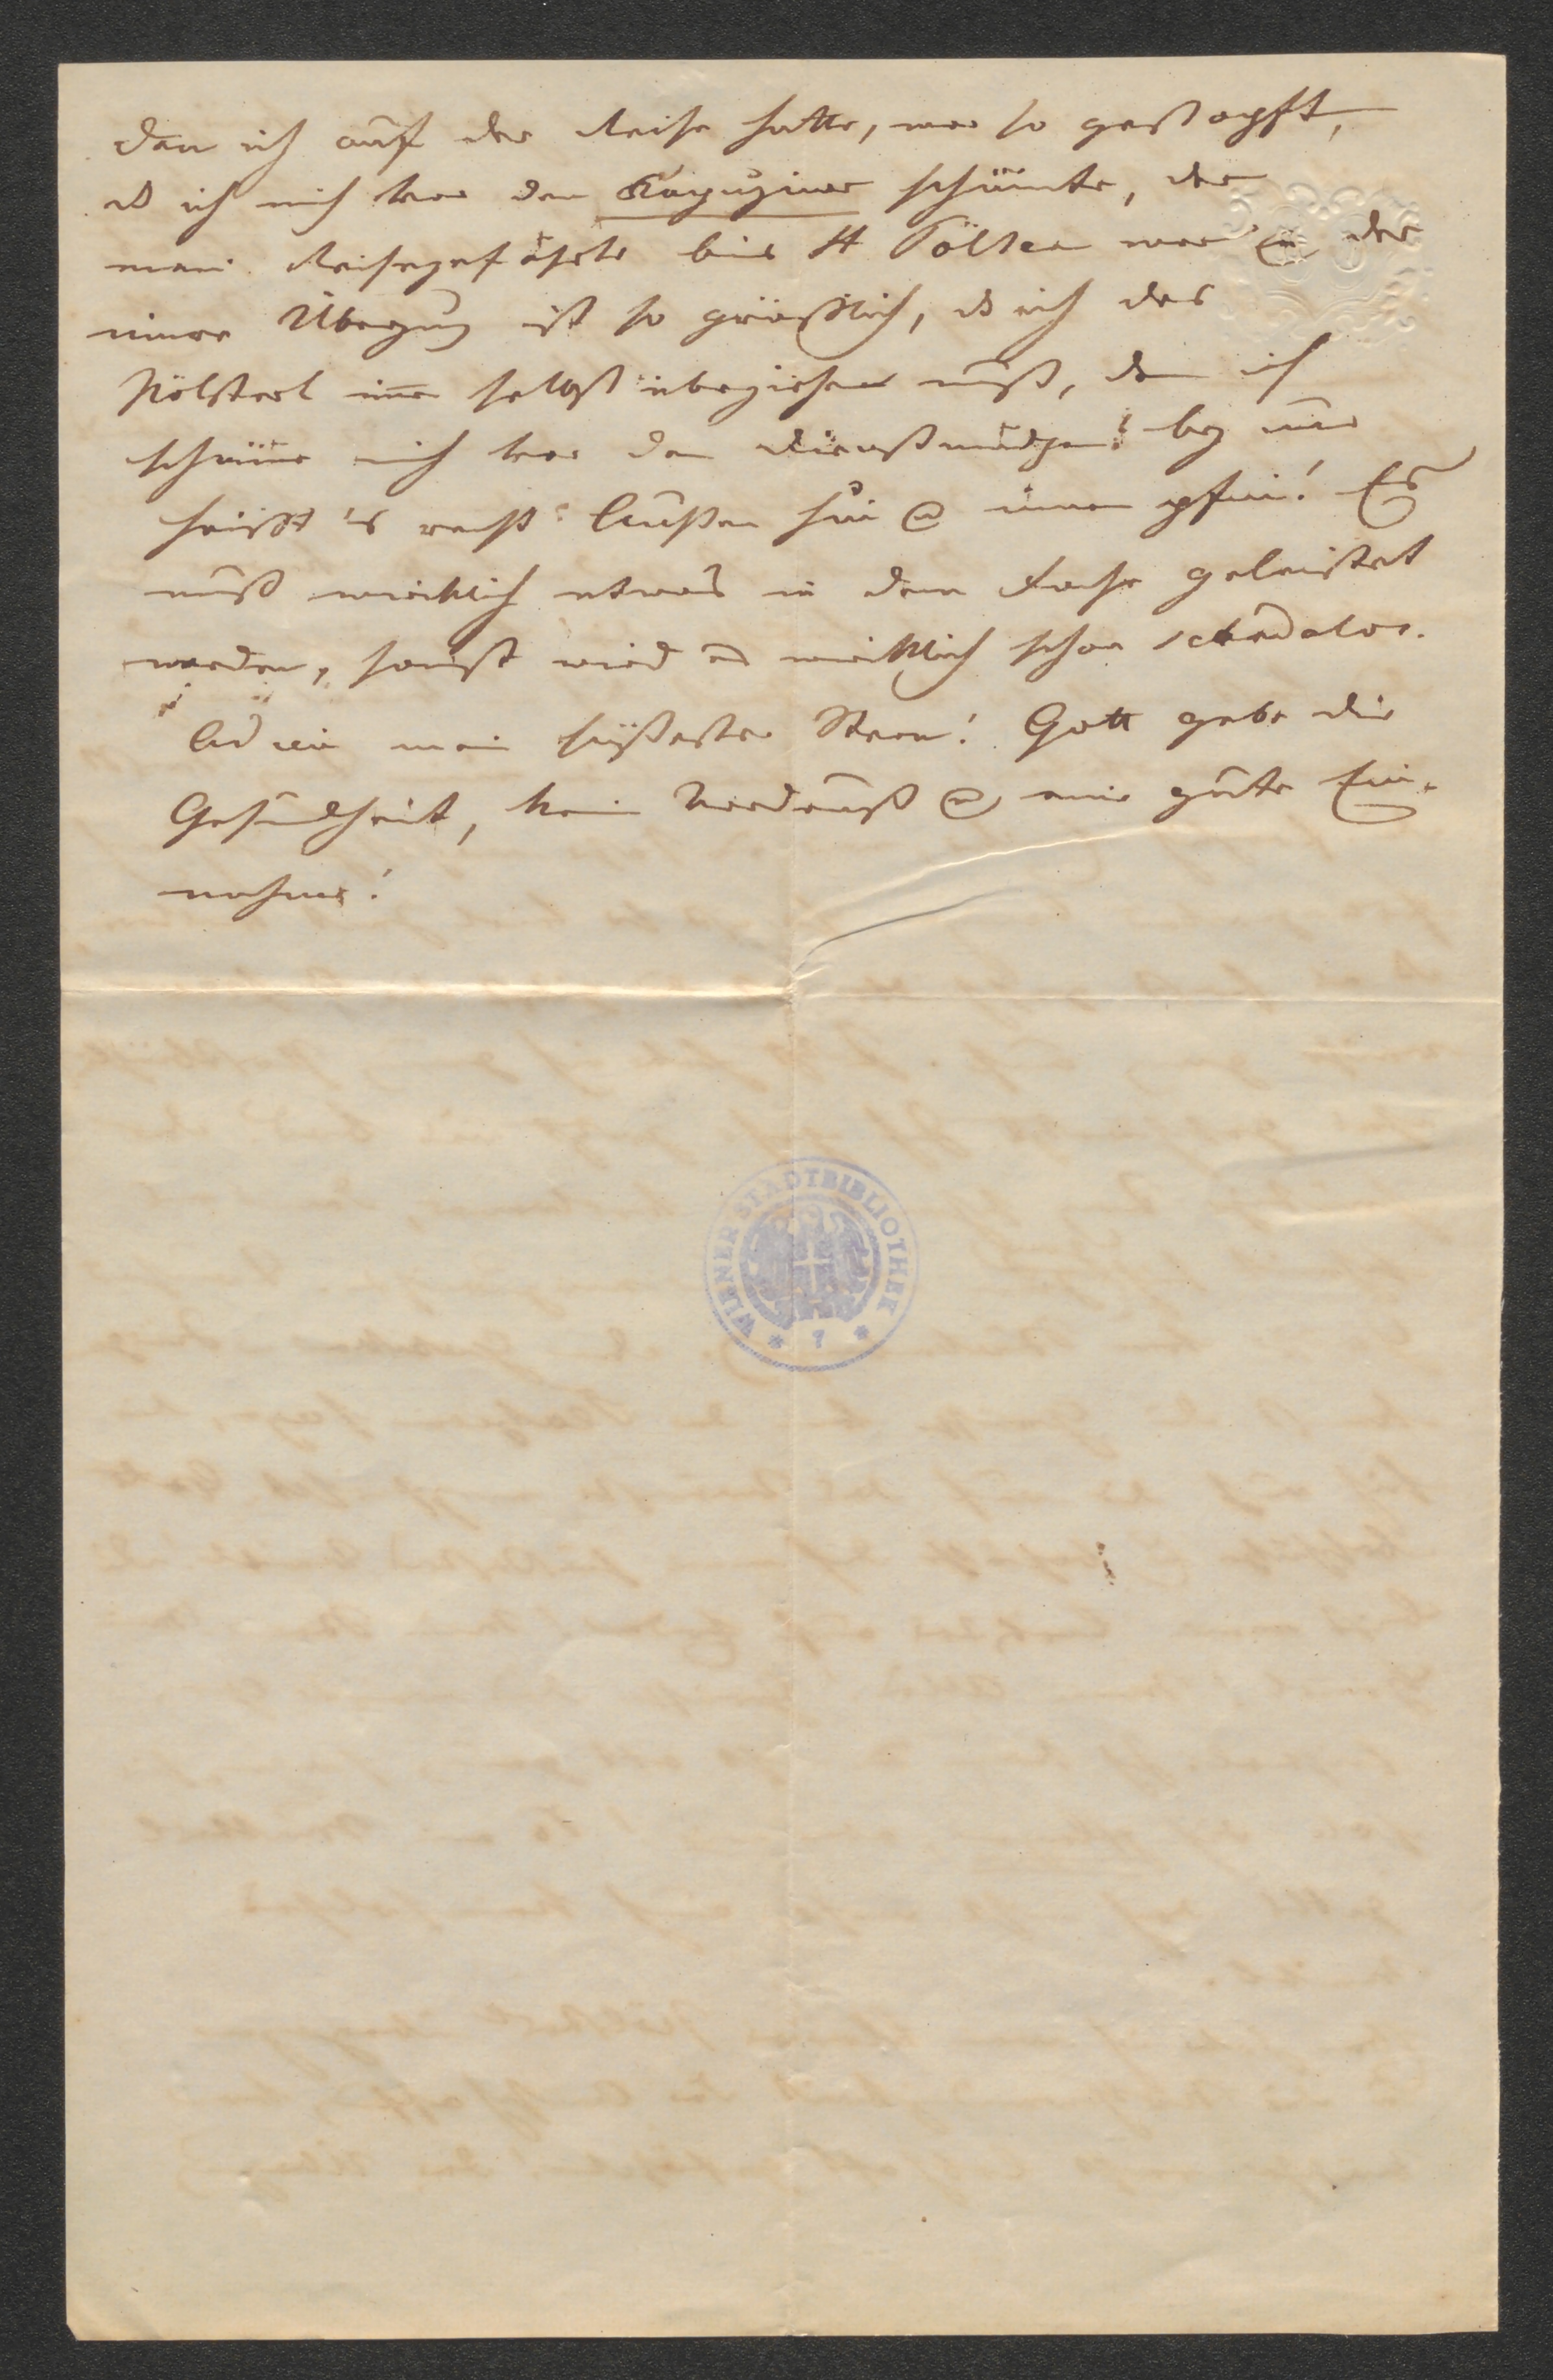 den ich auf der Reise hatte, war so gestopft,
dß ich mich vor dem Kapuziner schämte, der
mein Reisegefährte bis St Pölten war & der
innere Überzug ist so gräßlich, dß ich das
Pölsterl imer selbst überziehen muß, den ich
schäme mich vor den Dienstmädchen! bey uns
heißt 's recht: Außen hui & innen pfui! Es
muß wirklich etwas in dem Fache geleistet
werden, sonst wird es wirklich schon scandalos.
Adieu mein süßester Stern! Gott gebe dir
Gesundheit, kein Verdruß & mir gute Ein-
nahme!
WIENER STADTBIBLIOTHEK
* 7 *